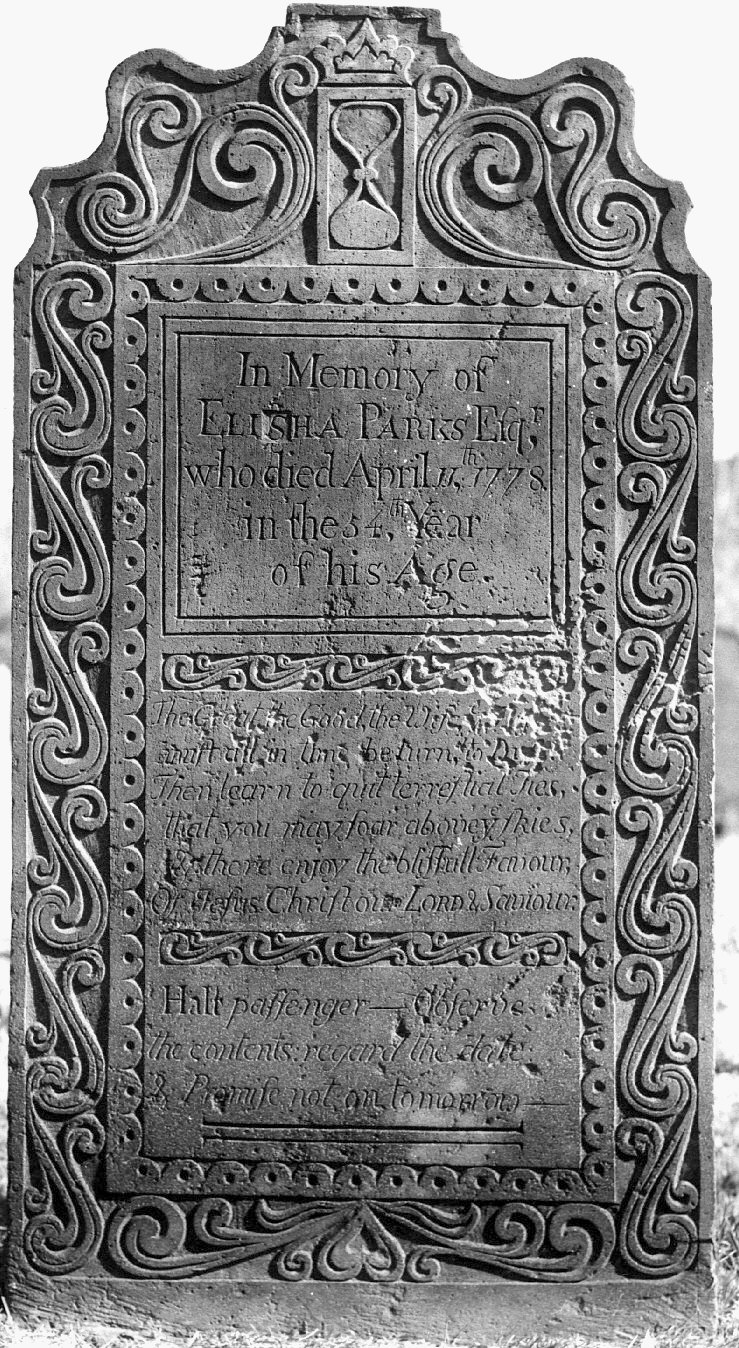 In Memory of
ELISHA PARKS Eſqr,
who died April 11,th 1778
in the 54,th Year
of his Age.
The Great, the Good, the Wiſe,
muſt all in time be turn,d to Duſt
Then learn to quit terreſtial Ties,
that you may ſoar above ye ſkies,
& there enjoy the bliſſfull Favour,
Of Jeſus Chriſt our LORD & Saviour.
Halt paſſenger — Obſerve
the contents: regard the date:
& Promiſe not on tomorrow —